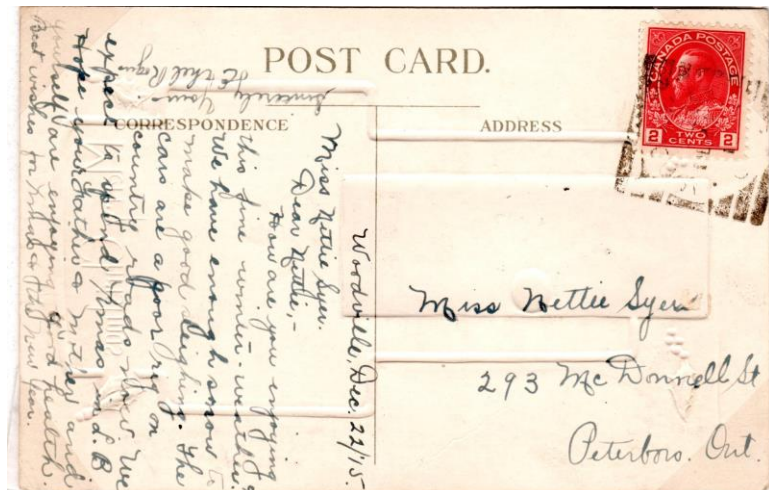 POST CARD.
CORRESPONDENCE
ADDRESS
CANADA POSTAGE
2 TWO CENTS 2
Woodville, Dec. 22/15.
Miss Nettie Syer.
Dear Nettie,-
How are you enjoying
this fine winter weather.
We have enough snow to
make good sleighing. The
cars are a poor rig on
country roads now. We
expect to spend Xmas in L. B
Hope your father & mother and
yourself are enjoying good health.
Best wishes for Xmas & the new Year.
Yours
Sincerely
Ethel
Miss Nettie Syer
293 McDonnell St
Peterboro. Ont.